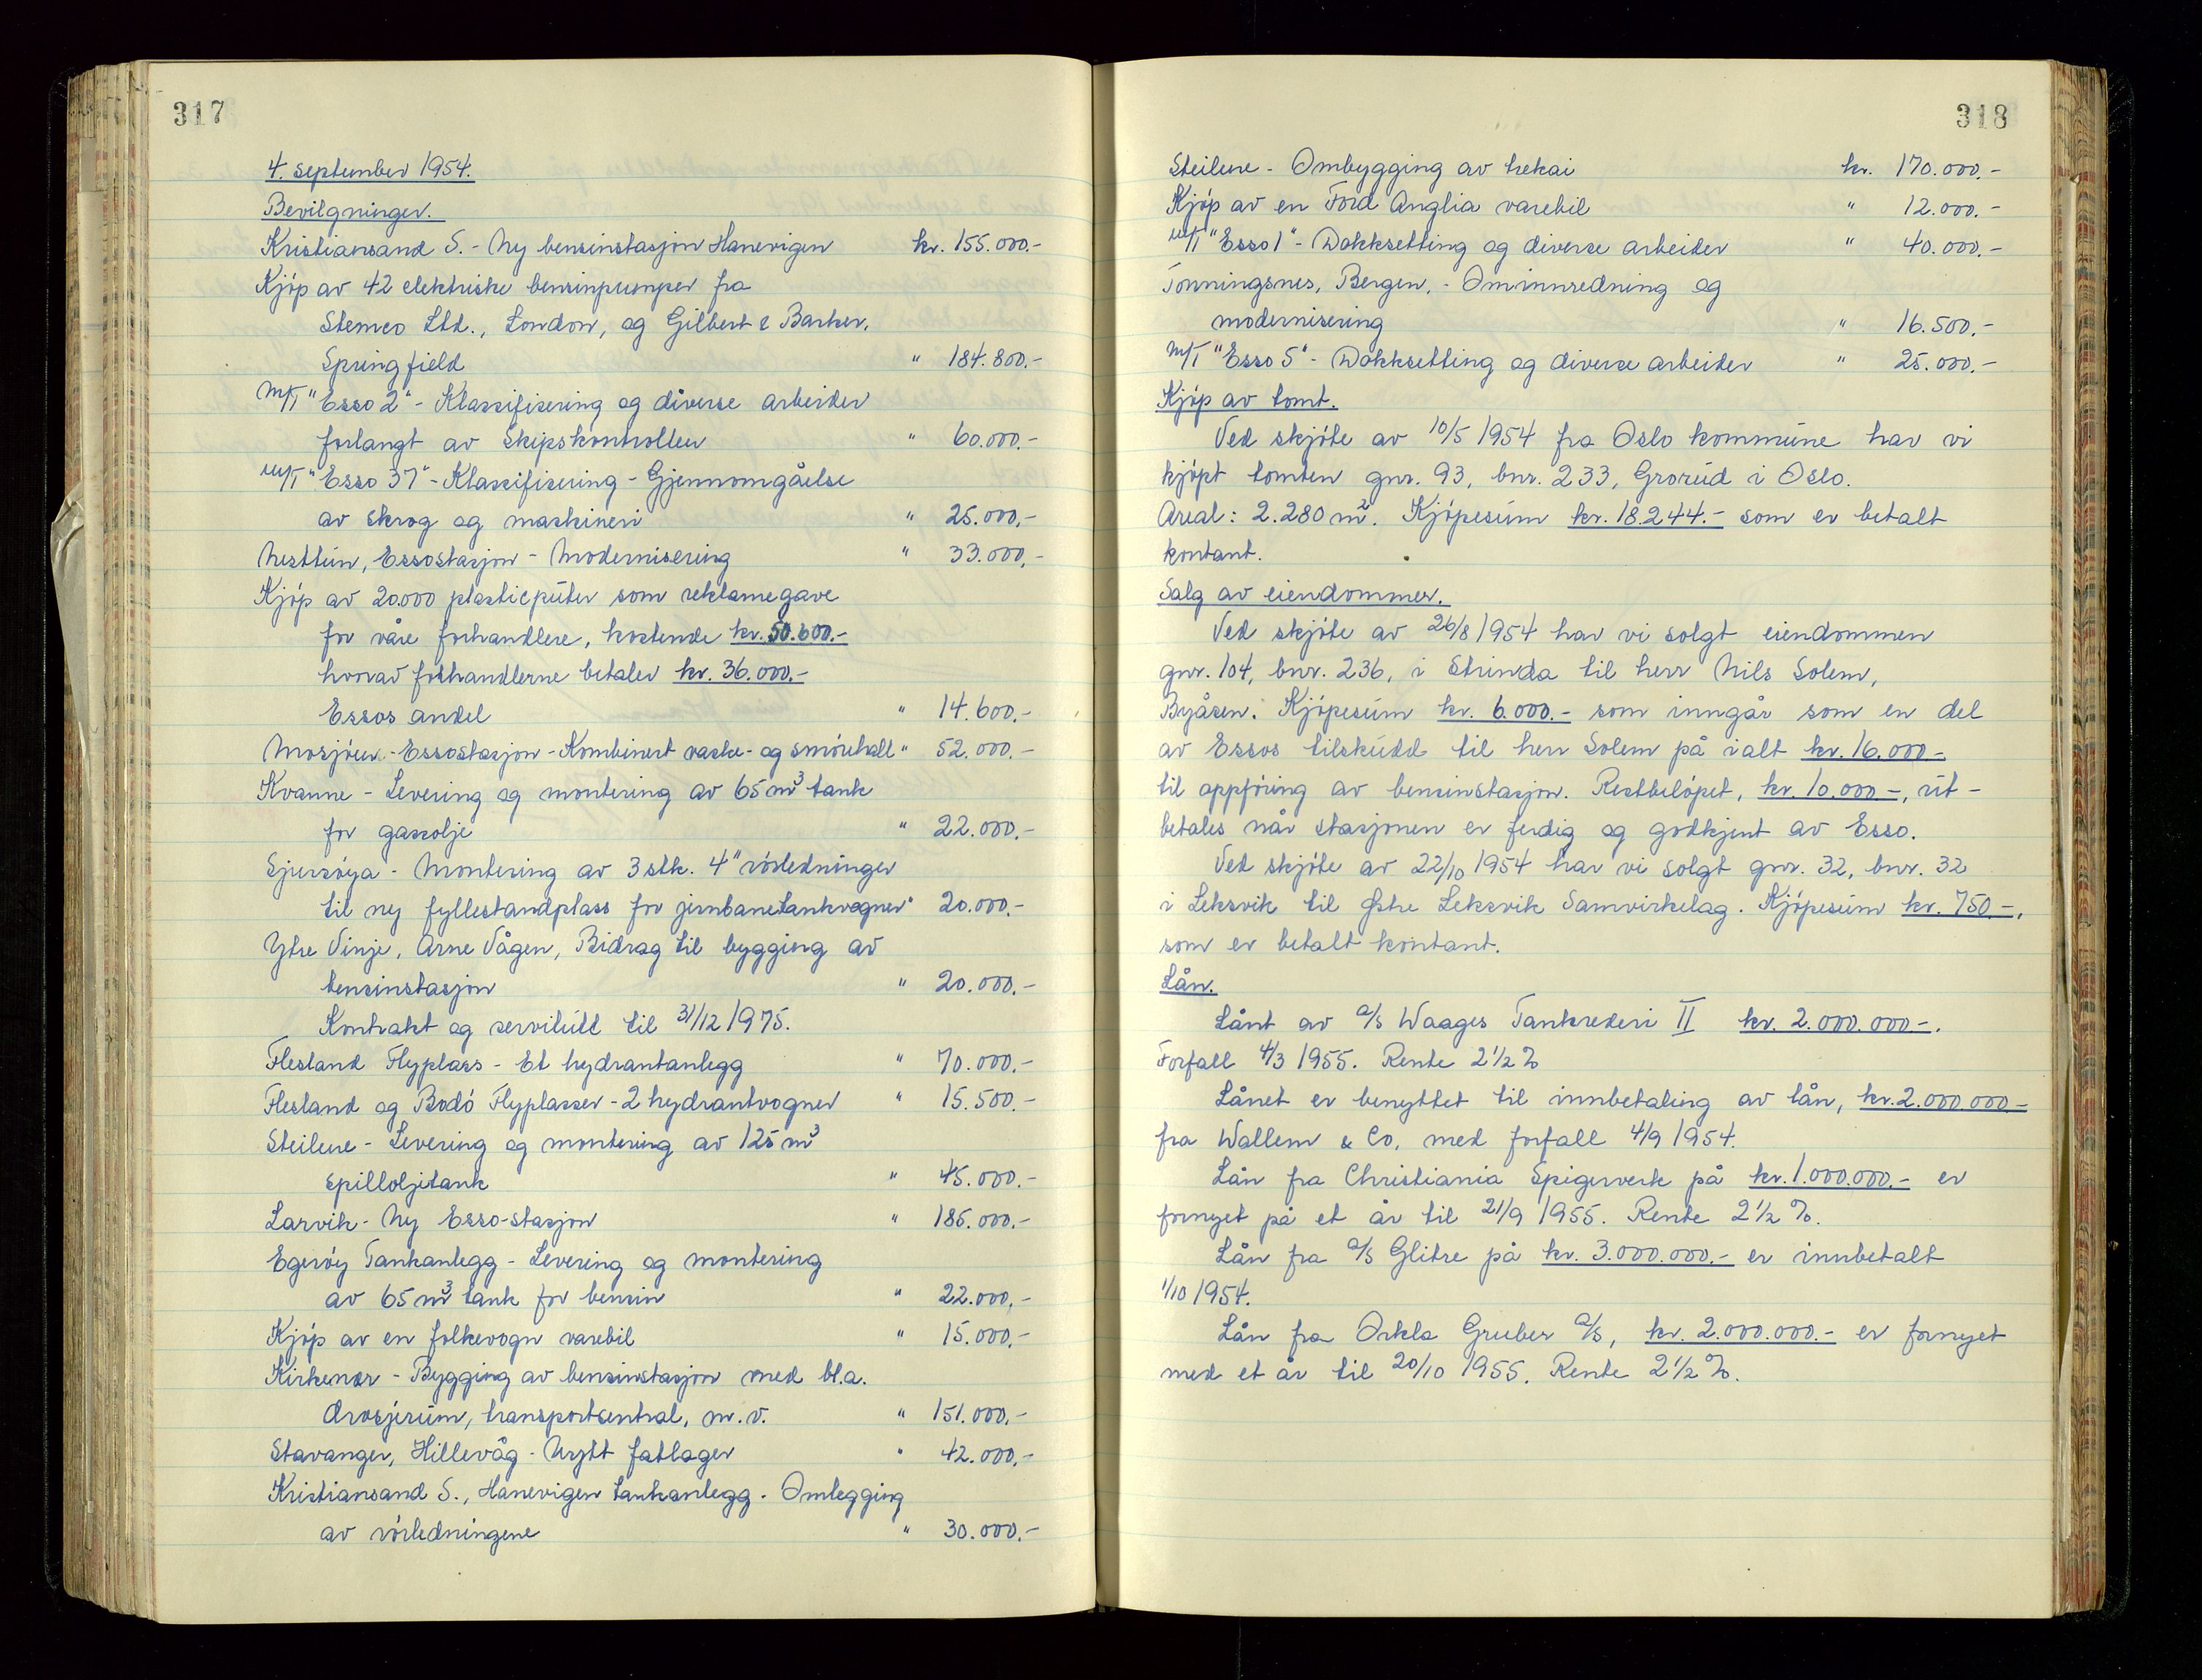 317
4. september 1954.
Bevilgninger.
Kristiansand S. - Ny bensinstasjon Hanevigen kr. 155.000.-
Kjøp av 42 elektriske bensinpumper fra
Stemco Ltd., London, og Gilbert & Barker,
Springfield " 184.800.-
M/T "Esso 2" - Klassifisering og diverse arbeider
forlangt av Skipskontrollen " 60.000.-
M/T "Esso 37" - Klassifisering - Gjennomgåelse
av skrog og maskineri " 25.000.-
Nesttun, Essostasjon - Modernisering " 33.000.-
Kjøp av 20.000 plasticputer som reklamegave
for våre forhandlere, kostende kr. 50.600.-
hvorav forhandlerne betaler kr. 36.000.-
Essos andel " 14.600.-
Mosjøen - Essostasjon - Kombinert vaske- og smørehall " 52.000.-
Kvanne - Levering og montering av 65 m³ tank
for gassolje " 22.000.-
Sjursøya - Montering av 3 stk. 4" rørledninger
til ny fyllestandplass for jernbanetankvogner " 20.000.-
Ytre Vinje, Arne Vågen, Bidrag til bygging av
bensinstasjon " 20.000.-
Kontrakt og servitutt til 31/12 1975.
Flesland Flyplass - Et hydrantanlegg " 70.000.-
Flesland og Bodø Flyplasser - 2 hydrantvogner " 15.500.-
Steilene - Levering og montering av 125 m³
spilloljetank " 45.000.-
Larvik - Ny Esso-stasjon " 185.000.-
Egerøy Tankanlegg - Levering og montering
av 65 m³ tank for bensin " 22.000.-
Kjøp av en folkevogn varebil " 15.000.-
Kirkenær - Bygging av bensinstasjon med bl.a.
drosjerum, transportsentral, m.v. " 151.000.-
Stavanger, Hillevåg - Nytt fatlager " 42.000.-
Kristiansand S., Hanevigen tankanlegg - Omlegging
av rørledningene " 30.000.-
318
Steilene - Ombygging av trekai kr. 170.000.-
Kjøp av en Ford Anglia varebil " 12.000.-
M/T "Esso 1" - Dokksetting og diverse arbeider " 40.000.-
Tonningsnes, Bergen, - Ominnredning og
modernisering " 16.500.-
M/T "Esso 5" - Dokksetting og diverse arbeider " 25.000.-
Kjøp av tomt.
Ved skjøte av 10/5 1954 fra Oslo kommune har vi
kjøpt tomten gnr. 93, bnr. 233, Grorud i Oslo.
Areal: 2.280 m². Kjøpesum kr. 18.244.- som er betalt
kontant.
Salg av eiendommer.
Ved skjøte av 26/8 1954 har vi solgt eiendommen
gnr. 104, bnr. 236, i Strinda til herr Nils Solem,
Byåsen. Kjøpesum kr. 6.000.- som inngår som en del
av Essos tilskudd til herr Solem på ialt kr. 16.000.-
til oppføring av bensinstasjon. Restbeløpet, kr. 10.000.-, ut-
betales når stasjonen er ferdig og godkjent av Esso.
Ved skjøte av 22/10 1954 har vi solgt gnr. 32, bnr. 32
i Leksvik til Østre Leksvik Samvirkelag. Kjøpesum kr. 750.-,
som er betalt kontant.
Lån.
Lånt av A/S Waages Tankrederi II kr. 2.000.000.-.
Forfall 4/3 1955. Rente 2 1/2 %
Lånet er benyttet til innbetaling av lån, kr. 2.000.000.-
fra Wallem & Co, med forfall 4/9 1954.
Lån fra Christiania Spigerverk på kr. 1.000.000.- er
fornyet på et år til 21/9 1955. Rente 2 1/2 %.
Lån fra A/S Glitre på kr. 3.000.000.- er innbetalt
1/10 1954.
Lån fra Orkla Gruber A/S, kr. 2.000.000.- er fornyet
med et år til 20/10 1955. Rente 2 1/2 %.